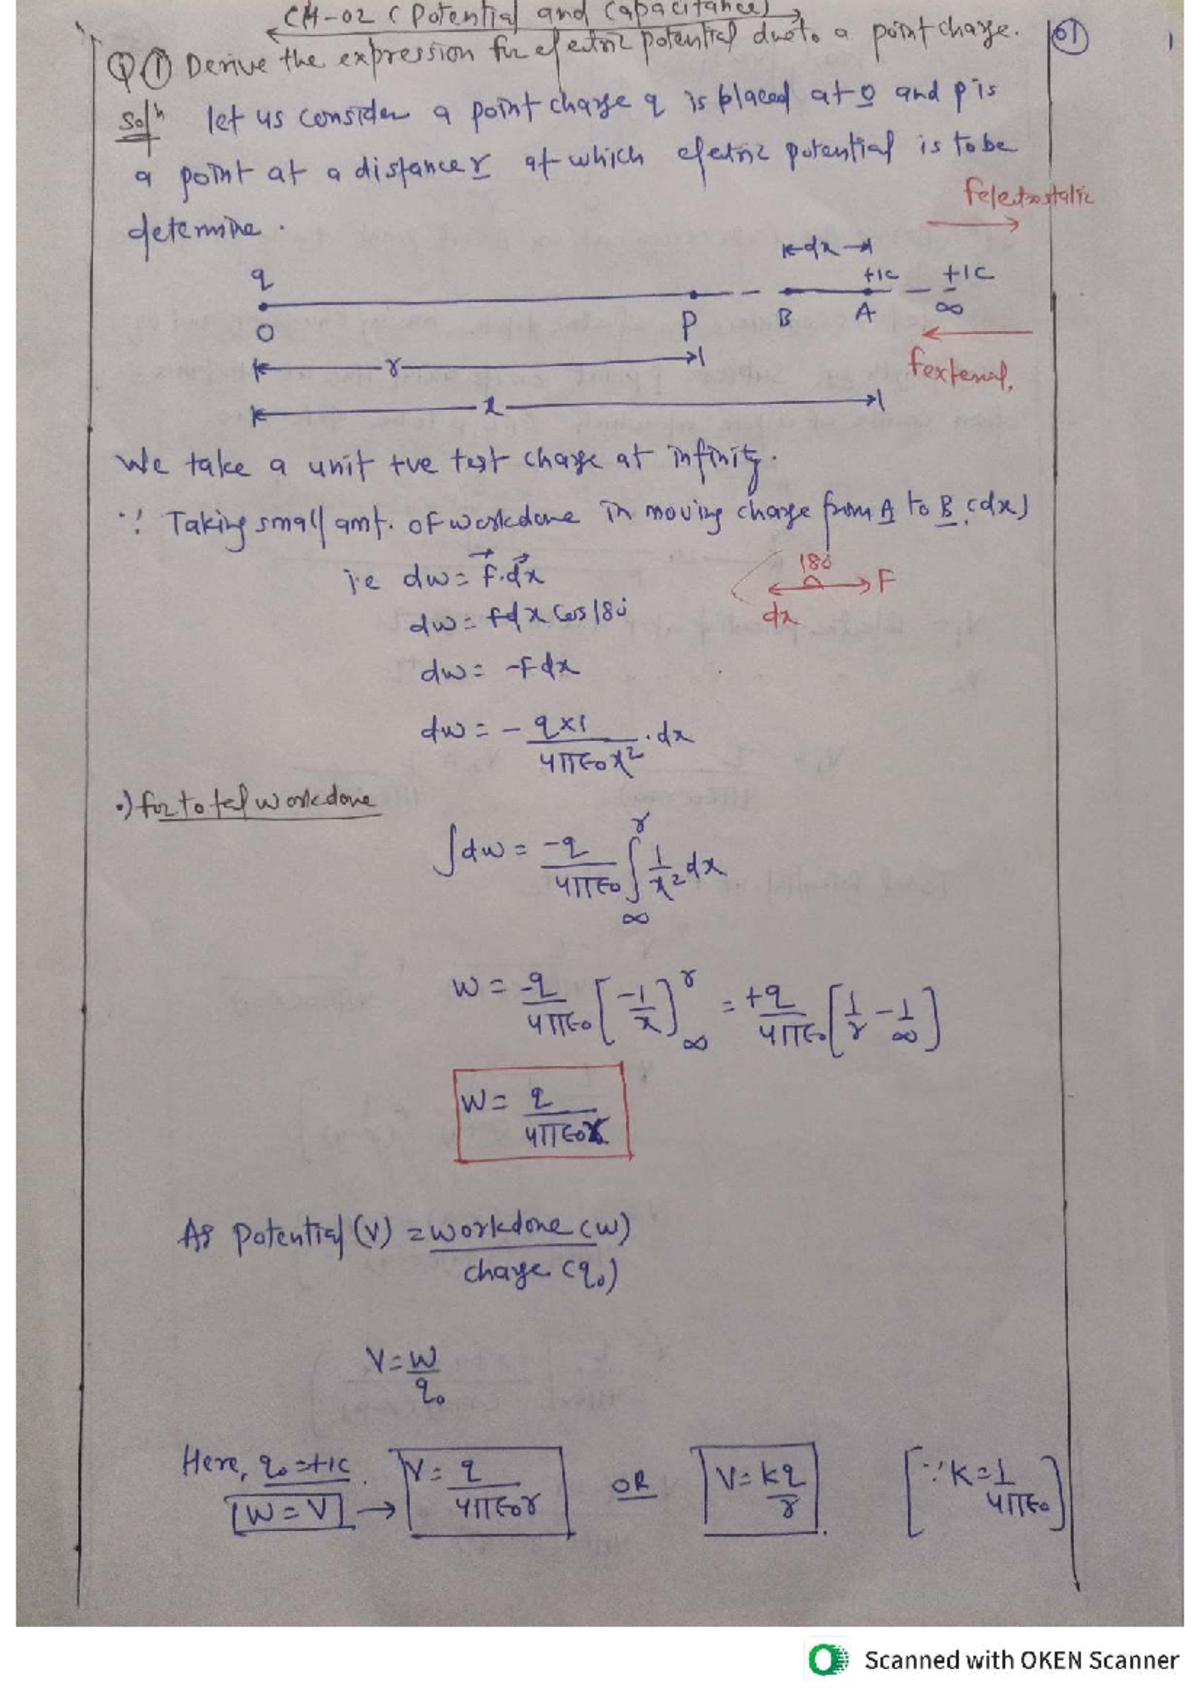 CH-02 (Potential and Capacitance)
Q.① Derive the expression for electric potential due to a point charge. 01
Solⁿ let us consider a point charge q is placed at O and p is
a point at a distance r at which electric potential is to be
determine.
Felectrostatic
k-dx-→
q +1C +1C
O P B A ∞
r
Fexternal.
x
We take a unit +ve test charge at infinity.
∵ Taking small amt. of workdone in moving charge from A to B (dx)
i.e dw = F⃗.dx⃗ 180° F
dw = Fdx Cos180° dx
dw = -Fdx
dw = - q×1/4πε₀x² .dx
•) for total workdone
∫dw = -q/4πε₀ ∫_∞^r 1/x² dx
W = -q/4πε₀ [-1/x]_∞^r = +q/4πε₀ [1/r - 1/∞]
W = q/4πε₀r
As Potential (V) = workdone (w)/charge (q₀)
V = W/q₀
Here, q₀ = +1C
[W = V] → V = q/4πε₀r OR V = kq/r [∵ K = 1/4πε₀]
Scanned with OKEN Scanner